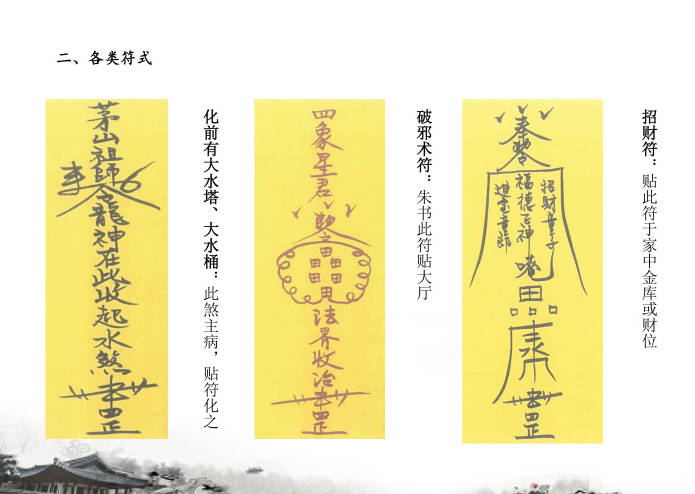 二、各类符式
茅山祖師
令龍神在此收起水煞
罡
化前有大水塔、大水桶：此煞主病，贴符化之
四象星君
法界收治
罡
破邪术符：朱书此符贴大厅
奉
福德正神
招財童子
進宝童郎
罡
招财符：贴此符于家中金库或财位